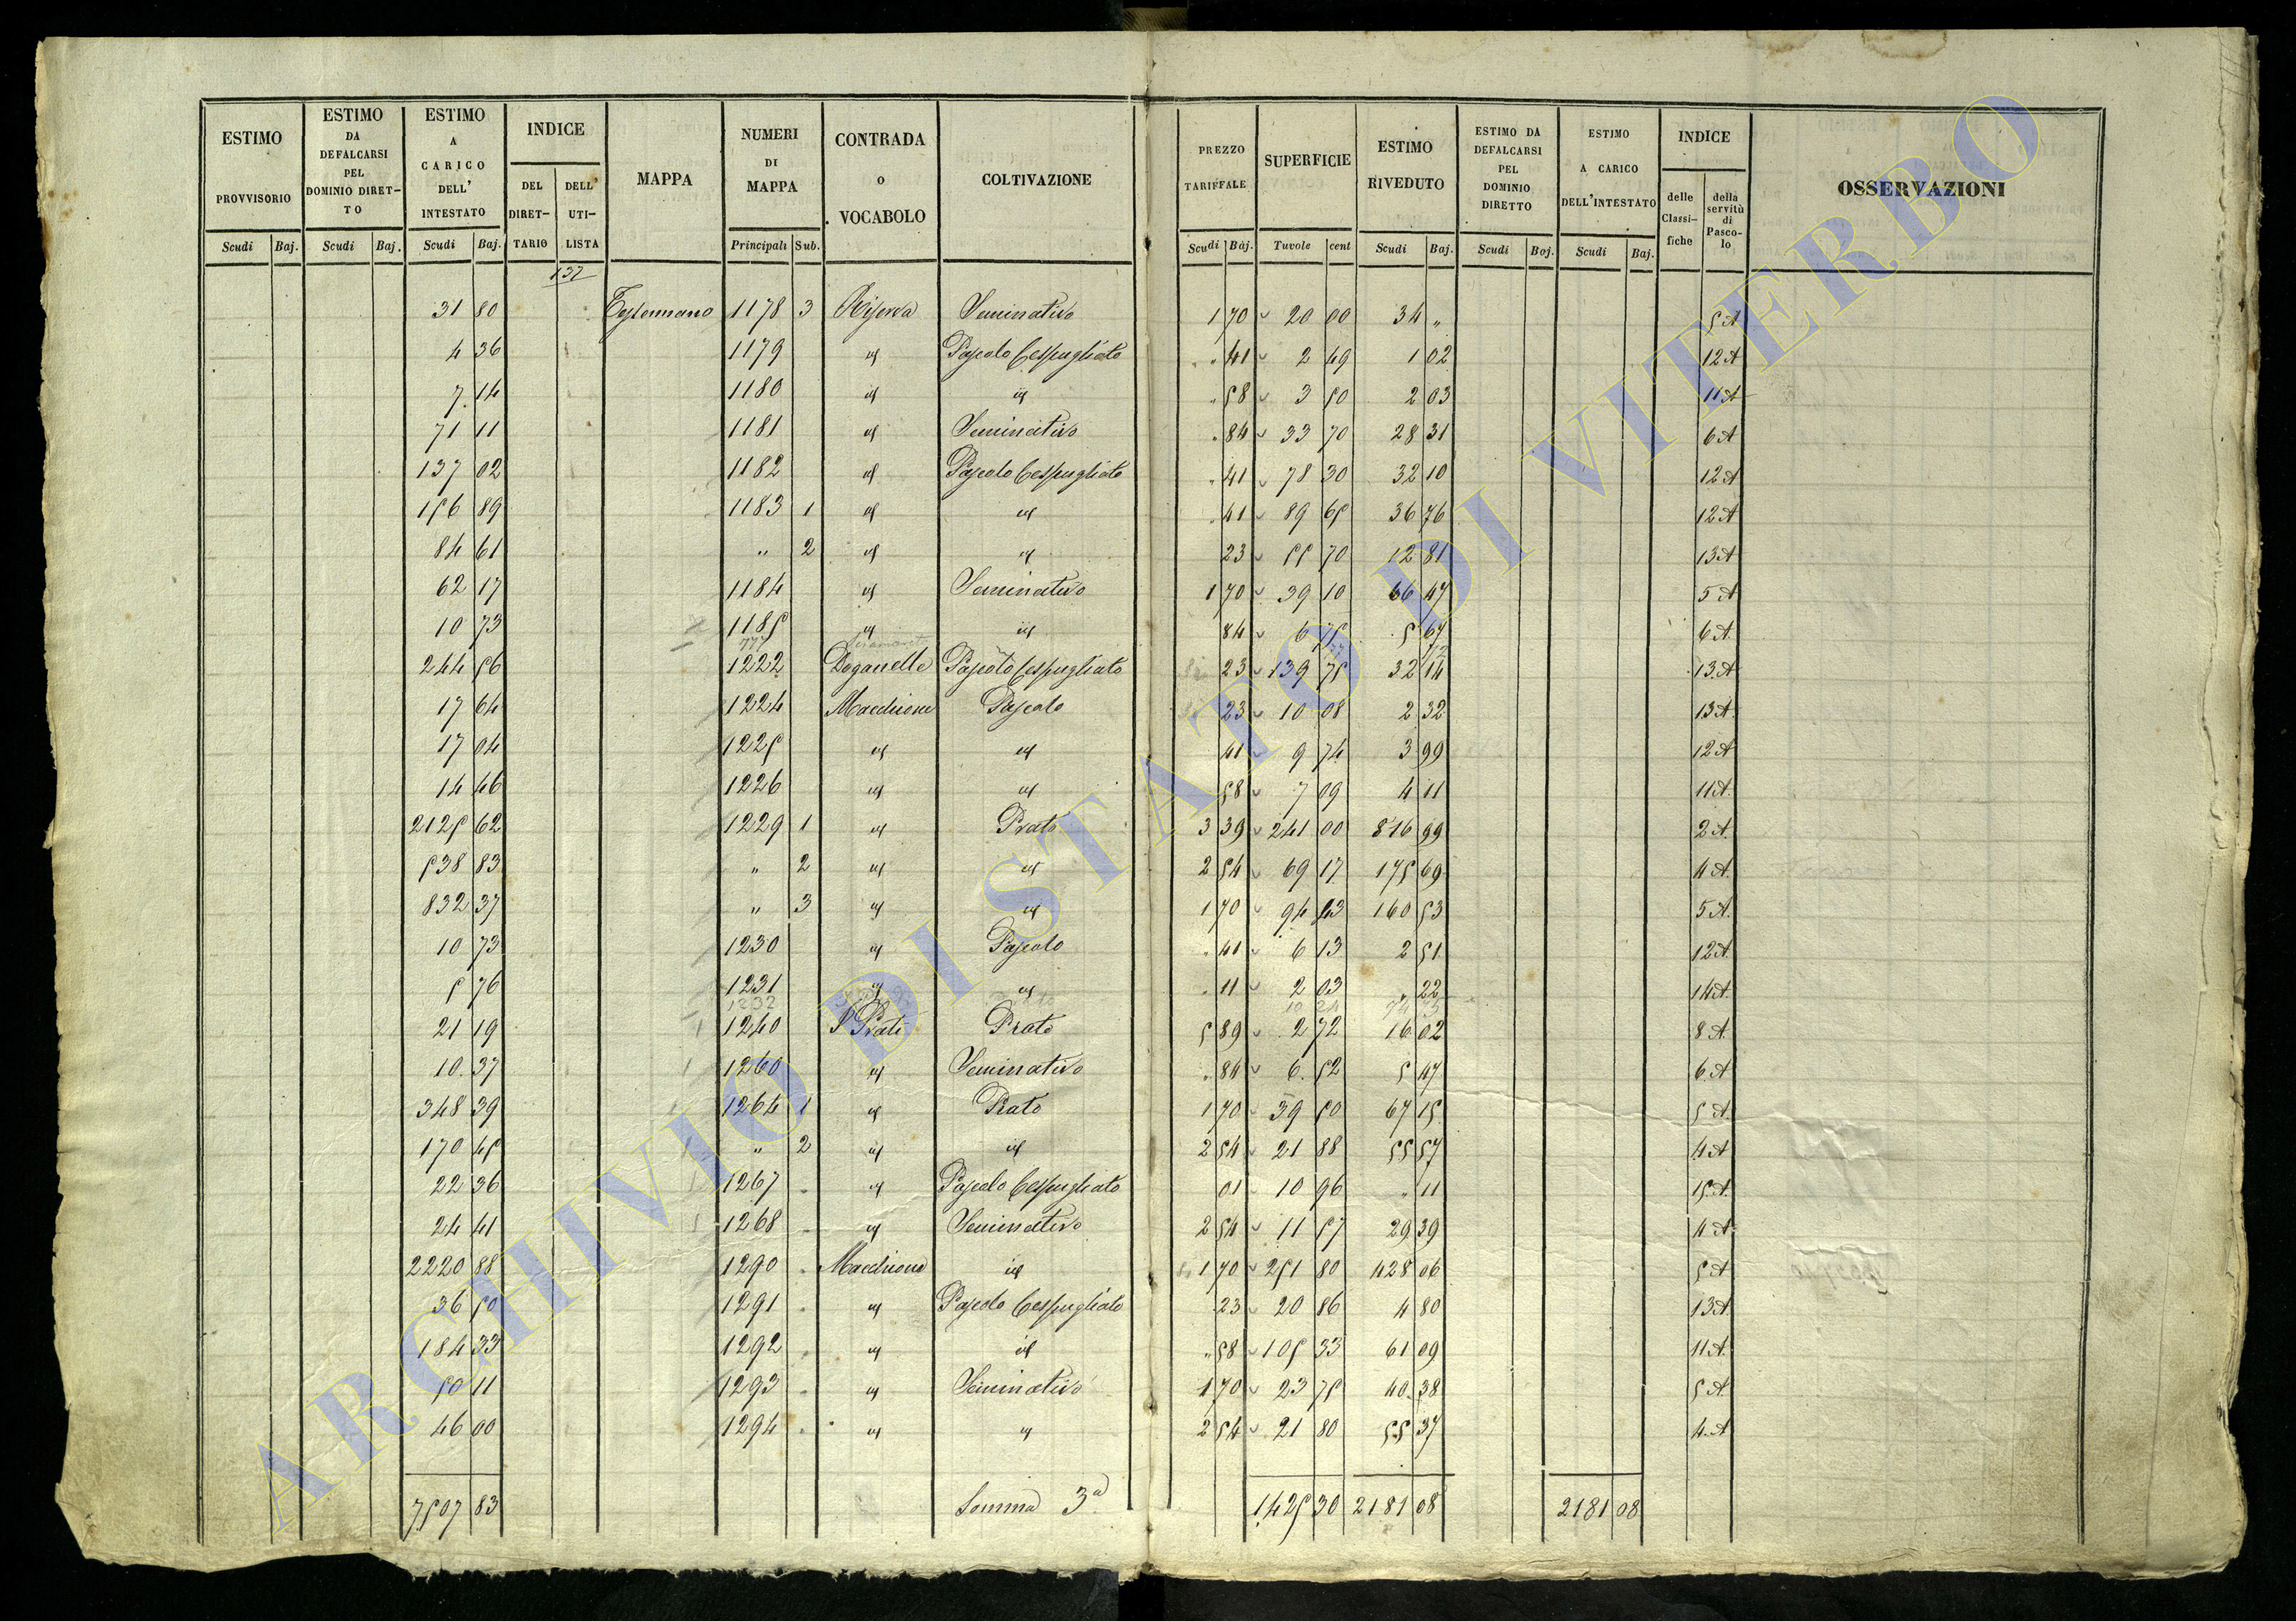 ESTIMO PROVVISORIO Scudi Baj.
ESTIMO DA DEFALCARSI PEL DOMINIO DIRET-TO Scudi Baj.
ESTIMO A CARICO DELL' INTESTATO Scudi Baj.
INDICE DEL DIRET-TARIO DELL' UTI-LISTA
MAPPA
NUMERI DI MAPPA Principali Sub.
CONTRADA o VOCABOLO
COLTIVAZIONE
PREZZO TARIFFALE Scudi Baj.
SUPERFICIE Tavole cent
ESTIMO RIVEDUTO Scudi Baj.
ESTIMO DA DEFALCARSI PEL DOMINIO DIRETTO Scudi Boj.
ESTIMO A CARICO DELL'INTESTATO Scudi Baj.
INDICE delle Classi-fiche della servitù di Pasco-lo
OSSERVAZIONI
137
31 80 1178 3 Riserva Seminativo 1 70 20 00 34 " 5 A
4 36 1179 id Pascolo Cespugliato " 41 2 49 1 02 12 A
7 14 1180 id id " 58 3 50 2 03 11 A
71 11 1181 id Seminativo " 84 33 70 28 31 6 A
137 02 1182 id Pascolo Cespugliato " 41 78 30 32 10 12 A
156 89 1183 1 id id " 41 89 65 36 76 12 A
84 61 " 2 id id 23 55 70 12 81 13 A
62 17 1184 id Seminativo 1 70 39 10 66 47 5 A
10 73 1185 id id 84 6 75 5 67 6 A.
777
244 56 1222 Doganelle Pascolo Cespugliato 23 139 75 32 14 13. A
17 64 1224 Macchione Pascolo 23 10 08 2 32 13 A.
17 04 1225 id id 41 9 74 3 99 12 A
14 46 1226 id id 58 7 09 4 11 11 A.
2125 62 1229 1 id Prato 3 39 241 00 816 99 2 A.
538 83 " 2 id id 2 54 69 17 175 69 4 A.
832 37 " 3 id id 1 70 94 43 160 53 5 A.
10 73 1230 id Pascolo " 41 6 13 2 51 12 A
5 76 1231 id id " 11 2 03 " 22 14 A.
21 19 1240 I Prati Prato 5 89 2 72 16 02 8 A.
10 37 1260 id Seminativo " 84 6 52 5 47 6. A
348 39 1264 1 id Prato 1 70 39 50 67 15 5 A.
170 45 " 2 id id 2 54 21 88 55 57 4 A
22 36 1267 id Pascolo Cespugliato 01 10 96 " 11 15. A.
24 41 1268 id Seminativo 2 54 11 57 29 39 4 A.
2220 88 1290 Macchione id 1 70 251 80 428 06 5 A
36 50 1291 id Pascolo Cespugliato 23 20 86 4 80 13 A.
184 33 1292 id id " 58 105 33 61 09 11 A.
50 11 1293 id Seminativo 1 70 23 75 40 38 5 A.
46 00 1294 id id 2 54 21 80 55 37 4. A
7507 83 Somma 3a 1425 30 2181 08 2181 08
ARCHIVIO DI STATO DI VITERBO